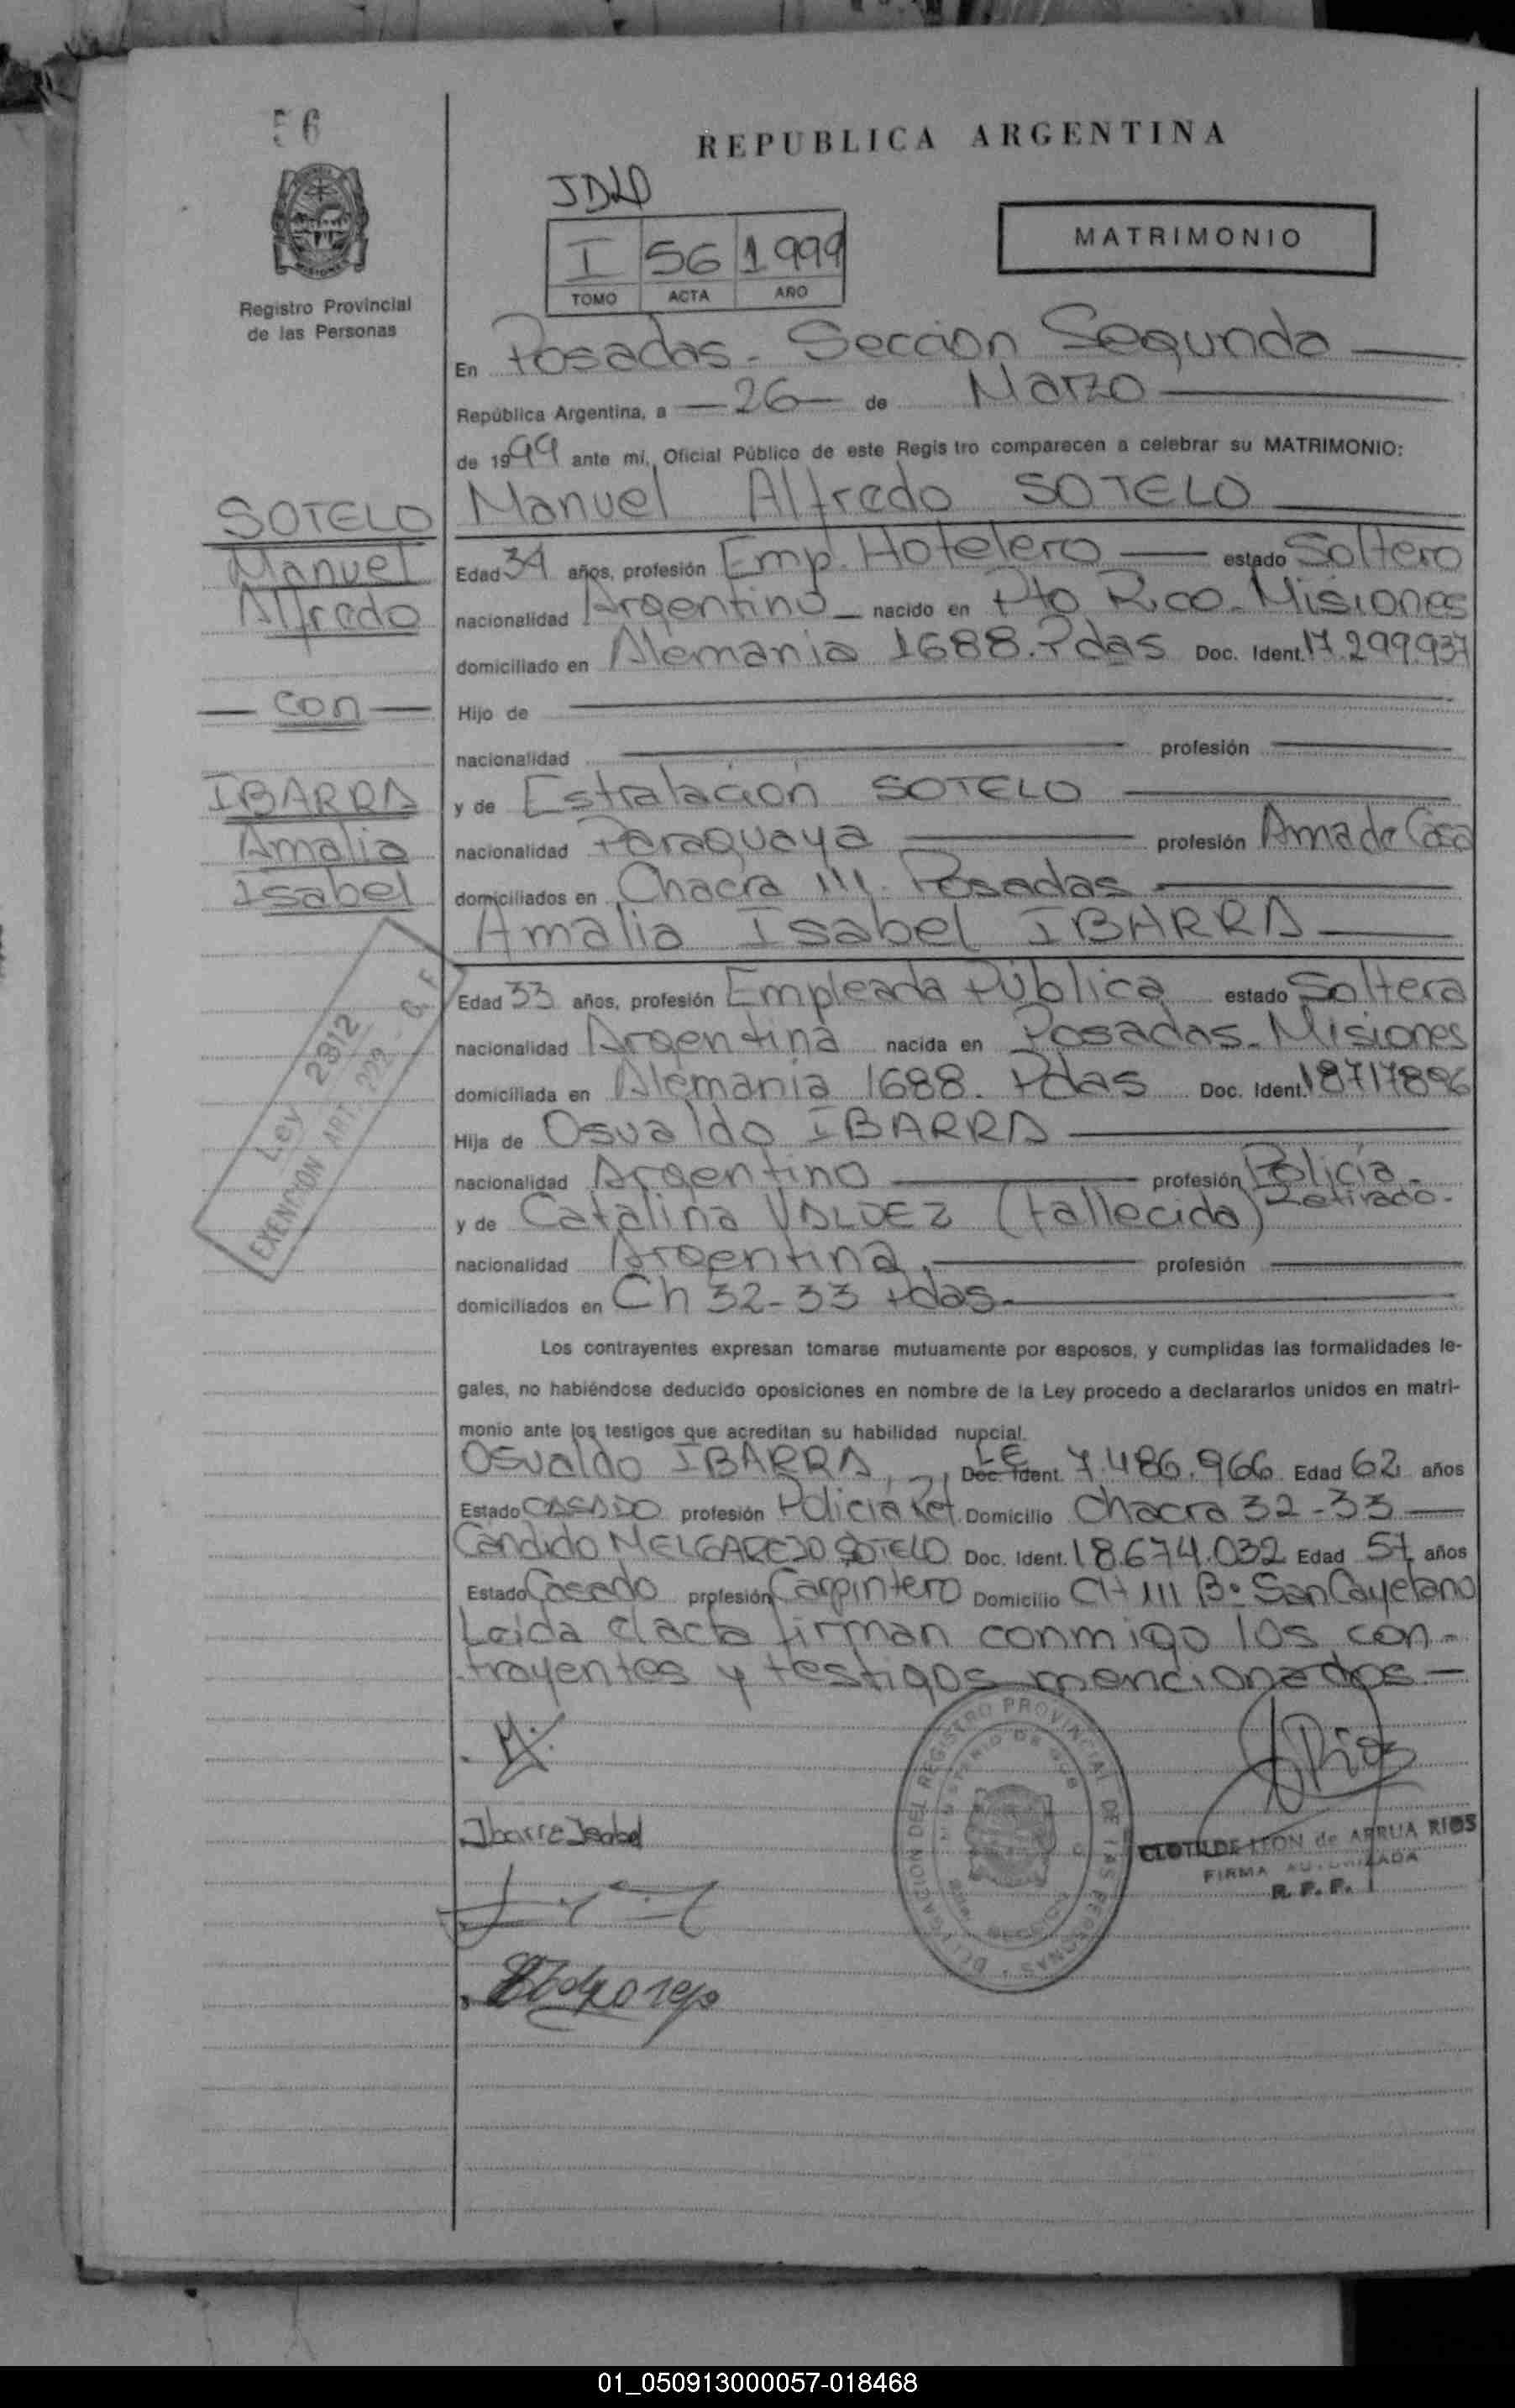 56
REPUBLICA ARGENTINA
I 56 1999
TOMO ACTA AÑO
MATRIMONIO
Registro Provincial
de las Personas
En Posadas - Sección Segunda
República Argentina, a - 26 - de Marzo
de 1999 ante mí, Oficial Público de este Registro comparecen a celebrar su MATRIMONIO:
SOTELO
Manuel
Alfredo
con
IBARRA
Amalia
Isabel
Manuel Alfredo SOTELO
Edad 34 años, profesión Emp. Hotelero estado Soltero
nacionalidad Argentino nacido en Pto Rico - Misiones
domiciliado en Alemania 1688. Pdas Doc. Ident. 17.299.937
Hijo de
nacionalidad profesión
y de Estralación SOTELO
nacionalidad Paraguaya profesión Ama de Casa
domiciliados en Chacra 111. Posadas
Amalia Isabel IBARRA
Edad 33 años, profesión Empleada Pública estado Soltera
nacionalidad Argentina nacida en Posadas - Misiones
domiciliada en Alemania 1688. Pdas Doc. Ident. 18717896
Hija de Osvaldo IBARRA
nacionalidad Argentino profesión Policía
Retirado -
y de Catalina VALDEZ (fallecida)
nacionalidad Argentina profesión
domiciliados en Ch 32-33 Pdas -
Ley 2812
EXENCION ART. 222 - G. F
Los contrayentes expresan tomarse mutuamente por esposos, y cumplidas las formalidades le-
gales, no habiéndose deducido oposiciones en nombre de la Ley procedo a declararlos unidos en matri-
monio ante los testigos que acreditan su habilidad nupcial.
Osvaldo IBARRA, LE Doc. Ident. 7.486.966 Edad 62 años
Estado CASADO profesión Policía Ret. Domicilio Chacra 32-33
Candido MELGAREJO SOTELO Doc. Ident. 18.674.032 Edad 57 años
Estado Casado profesión Carpintero Domicilio CH 111 Bº San Cayetano
Leida el acta firman conmigo los con-
trayentes y testigos mencionados -
Ibarra Isabel
DELEGACION DEL REGISTRO PROVINCIAL DE LAS PERSONAS
Rios
CLOTILDE LEON de ARRUA RIOS
FIRMA AUTORIZADA
R. P. P.
01_050913000057-018468